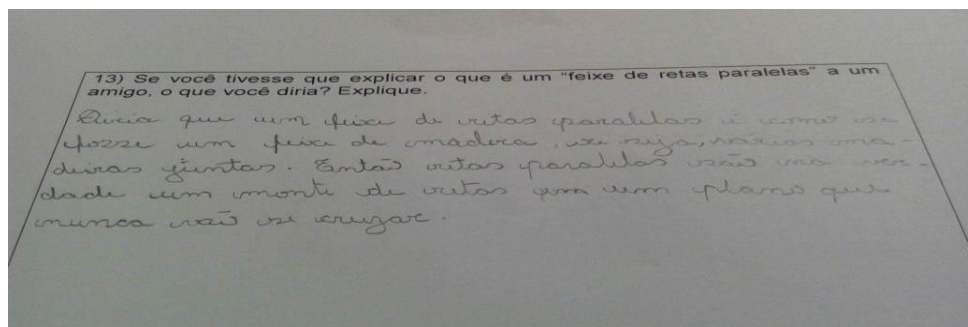 13) Se você tivesse que explicar o que é um "feixe de retas paralelas" a um
amigo, o que você diria? Explique.
Diria que um feixe de retas paralelas é como se
fosse um feixe de madeira, ou seja, várias ma-
deiras juntas. Então retas paralelas são na ver-
dade um monte de retas em um plano que
nunca vão se cruzar.